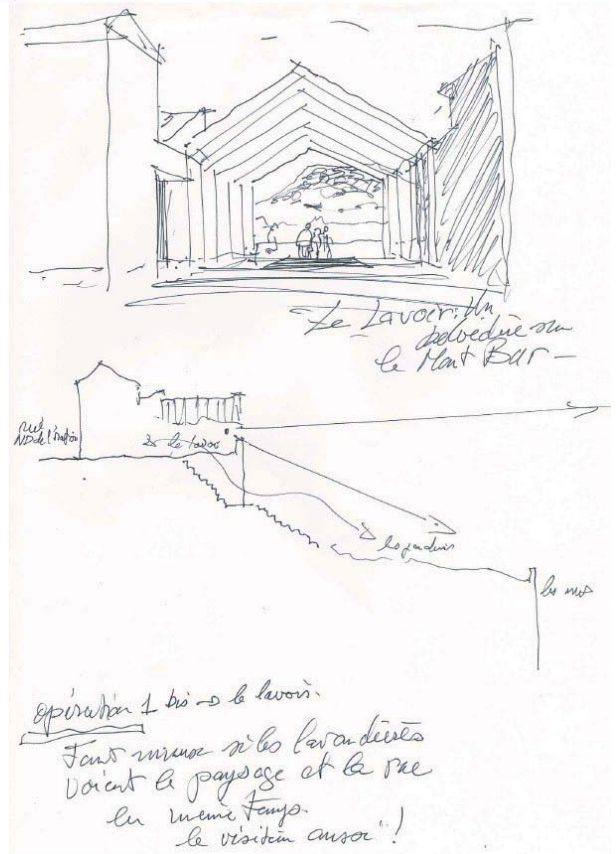 Le Lavoir: Un
belvedère sur
le Mont Bar -
rue
ND de l'
le lavoir
les jardins
les murs
opération 1 bis → le lavoir.
Tant mieux si les lavandières
voient le paysage et la rue
en même temps.
le visiteur aussi !